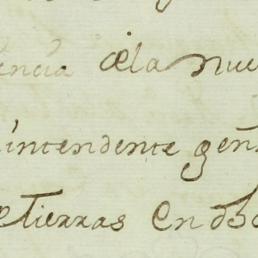 encia de la nue
intendente gen
e tierras en dho